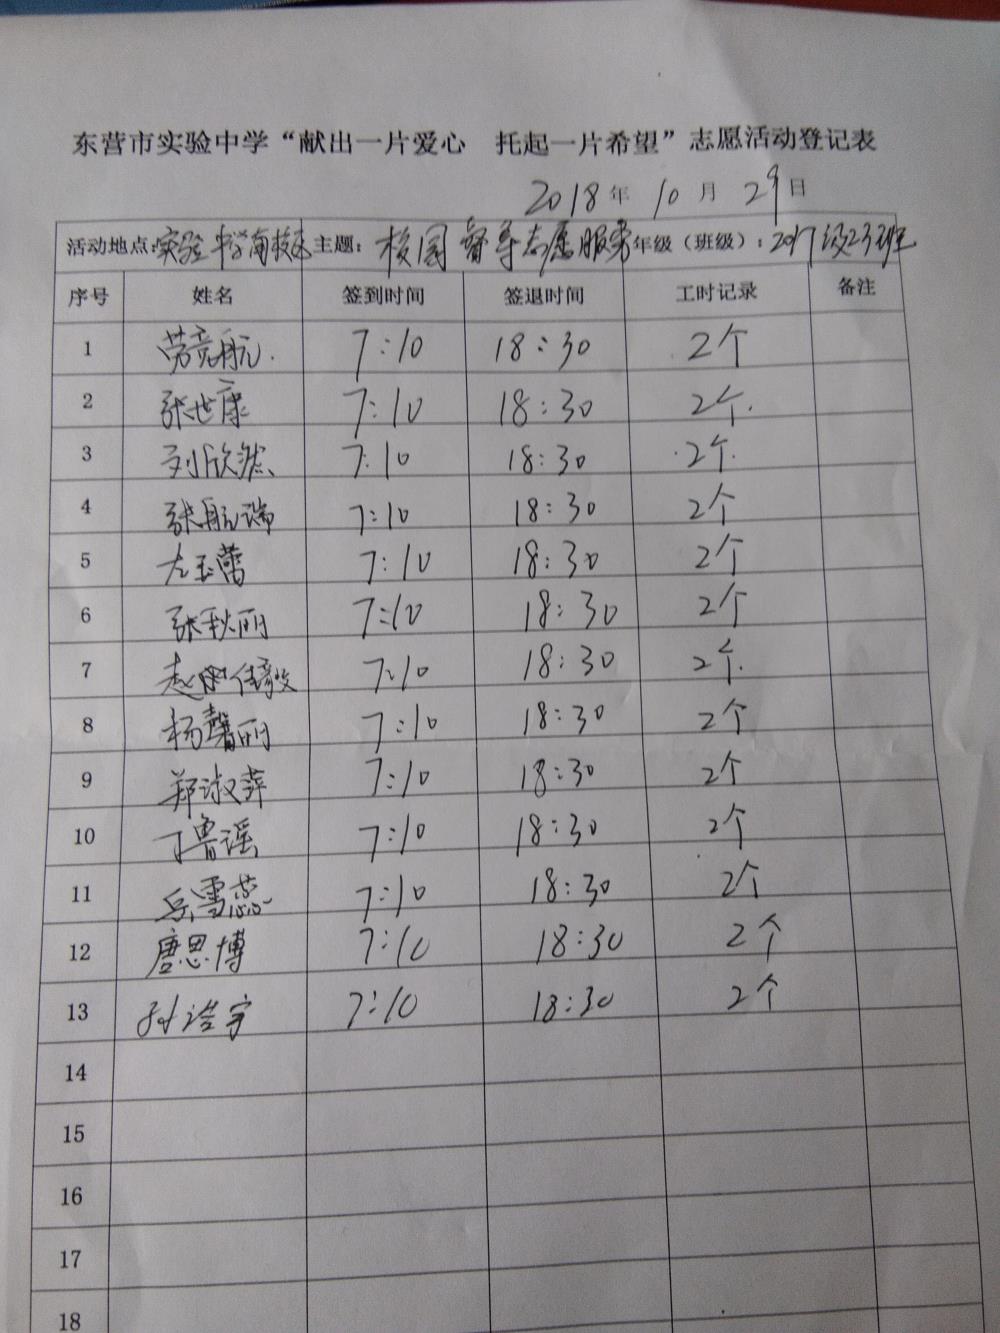 东营市实验中学“献出一片爱心 托起一片希望”志愿活动登记表
2018年 10月 29日
活动地点:实验中学南校区 主题: 校园督导志愿服务 年级（班级）: 2017级23班
序号 姓名 签到时间 签退时间 工时记录 备注
1 劳亮航 7:10 18:30 2个
2 张世康 7:10 18:30 2个
3 刘欣然 7:10 18:30 2个
4 张航瑞 7:10 18:30 2个
5 左玉蕾 7:10 18:30 2个
6 张秋丽 7:10 18:30 2个
7 赵佳毅 7:10 18:30 2个
8 杨馨丽 7:10 18:30 2个
9 郑淑萍 7:10 18:30 2个
10 丁鲁谣 7:10 18:30 2个
11 岳雪蕊 7:10 18:30 2个
12 唐思博 7:10 18:30 2个
13 孙浩宇 7:10 18:30 2个
14
15
16
17
18